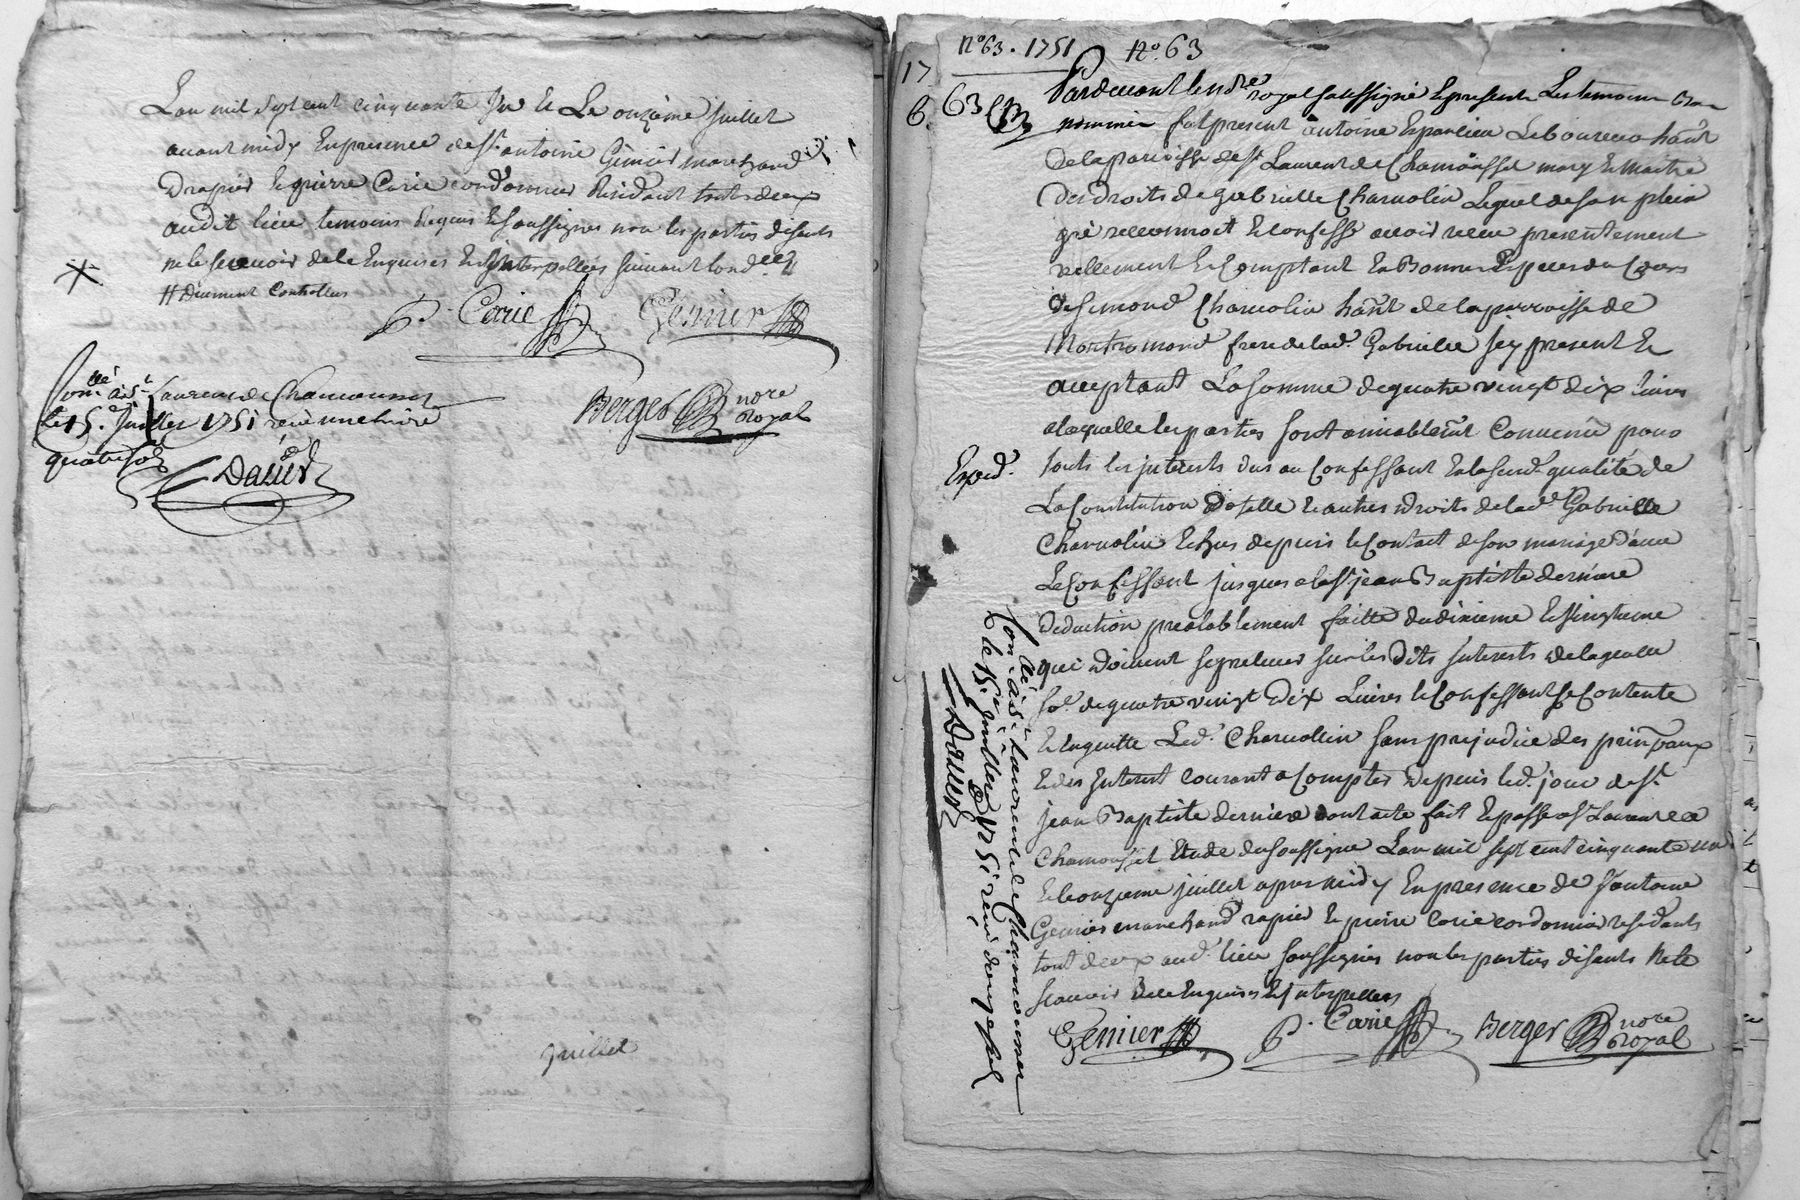 L'an mil sept cent cinquante un et Le onzieme juillet
avant midy En presence de sr antoine Genier marchand
Drapier et pierre Carie cordonnier Residant touts deux
audit lieu temoins Requis et soussignes non les parties disants
ne le scavoir de ce Enquises et Interpellées suivant l'ord.ce
# Duement Controllees
P. Carie Genier
Con.llé a st Laurent de Chamousset
le 15e juillet 1751 recu une livre
quatre sols
Dauier
Berger nore
Royal
juillet
no 63 . 1751 no. 63
17
6. 63
Pardevant le no.re royal soussigné et presents Les temoins bas
nommés fut present antoine Le bourreau ha.nt
de la paroisse de st Laurent de Chamousset mary et maitre
des droits de gabrielle Charuolin Lequel de son plein
gré reconnoit et confesse avoir receu presentement
reellement et Comptant En Bonnes Especes du Cours
de simond Charuolin ha.nt de la parroisse de
Montromand frere de lad. Gabrielle jcy present et
acceptant La somme de quatre vingt dix livres
a laquelle les parties sont amiablem.t Convenu pour
touts les jnterets dus au Confessant En la susd. qualité de
La Constitution Dotelle et autres Droits de lad. Gabrielle
Charuolin Echus depuis le Contrat de son mariage d'avec
Le Confessant jusques a la st jean Baptiste derniere
Deduction prealablement faitte du dixieme et vingtieme
qui doivent se prelever sur les dits jnterets de laquelle
so.e de quatre vingt Dix Livres le Confessant se Contente
et En quitte Led. Charuollin sans prejudice des principaux
et des jnterest courant a Compter Depuis led. jour de st
jean Baptiste derniere dont acte fait et passé a st Laurent de
Chamousset Etude du soussigné L'an mil sept cent cinquante un
et le onzieme juillet apres midy En presence de sr antoine
Genier marchand drapier et pierre Carie cordonnier residants
tout deux aud. lieu soussignes non les parties disants ne le
scavoir de ce Enquises et jnterpellees
Genier P. Carie Berger nore
Royal
Exped.
Con.llé a st Laurent de Chamousset
le 15e juillet 1751 recu douze sols
Dauier